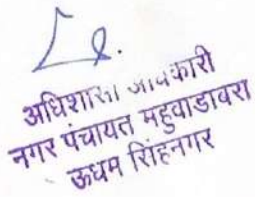 अधिशासी अधिकारी
नगर पंचायत महुवाडावरा
ऊधम सिंहनगर